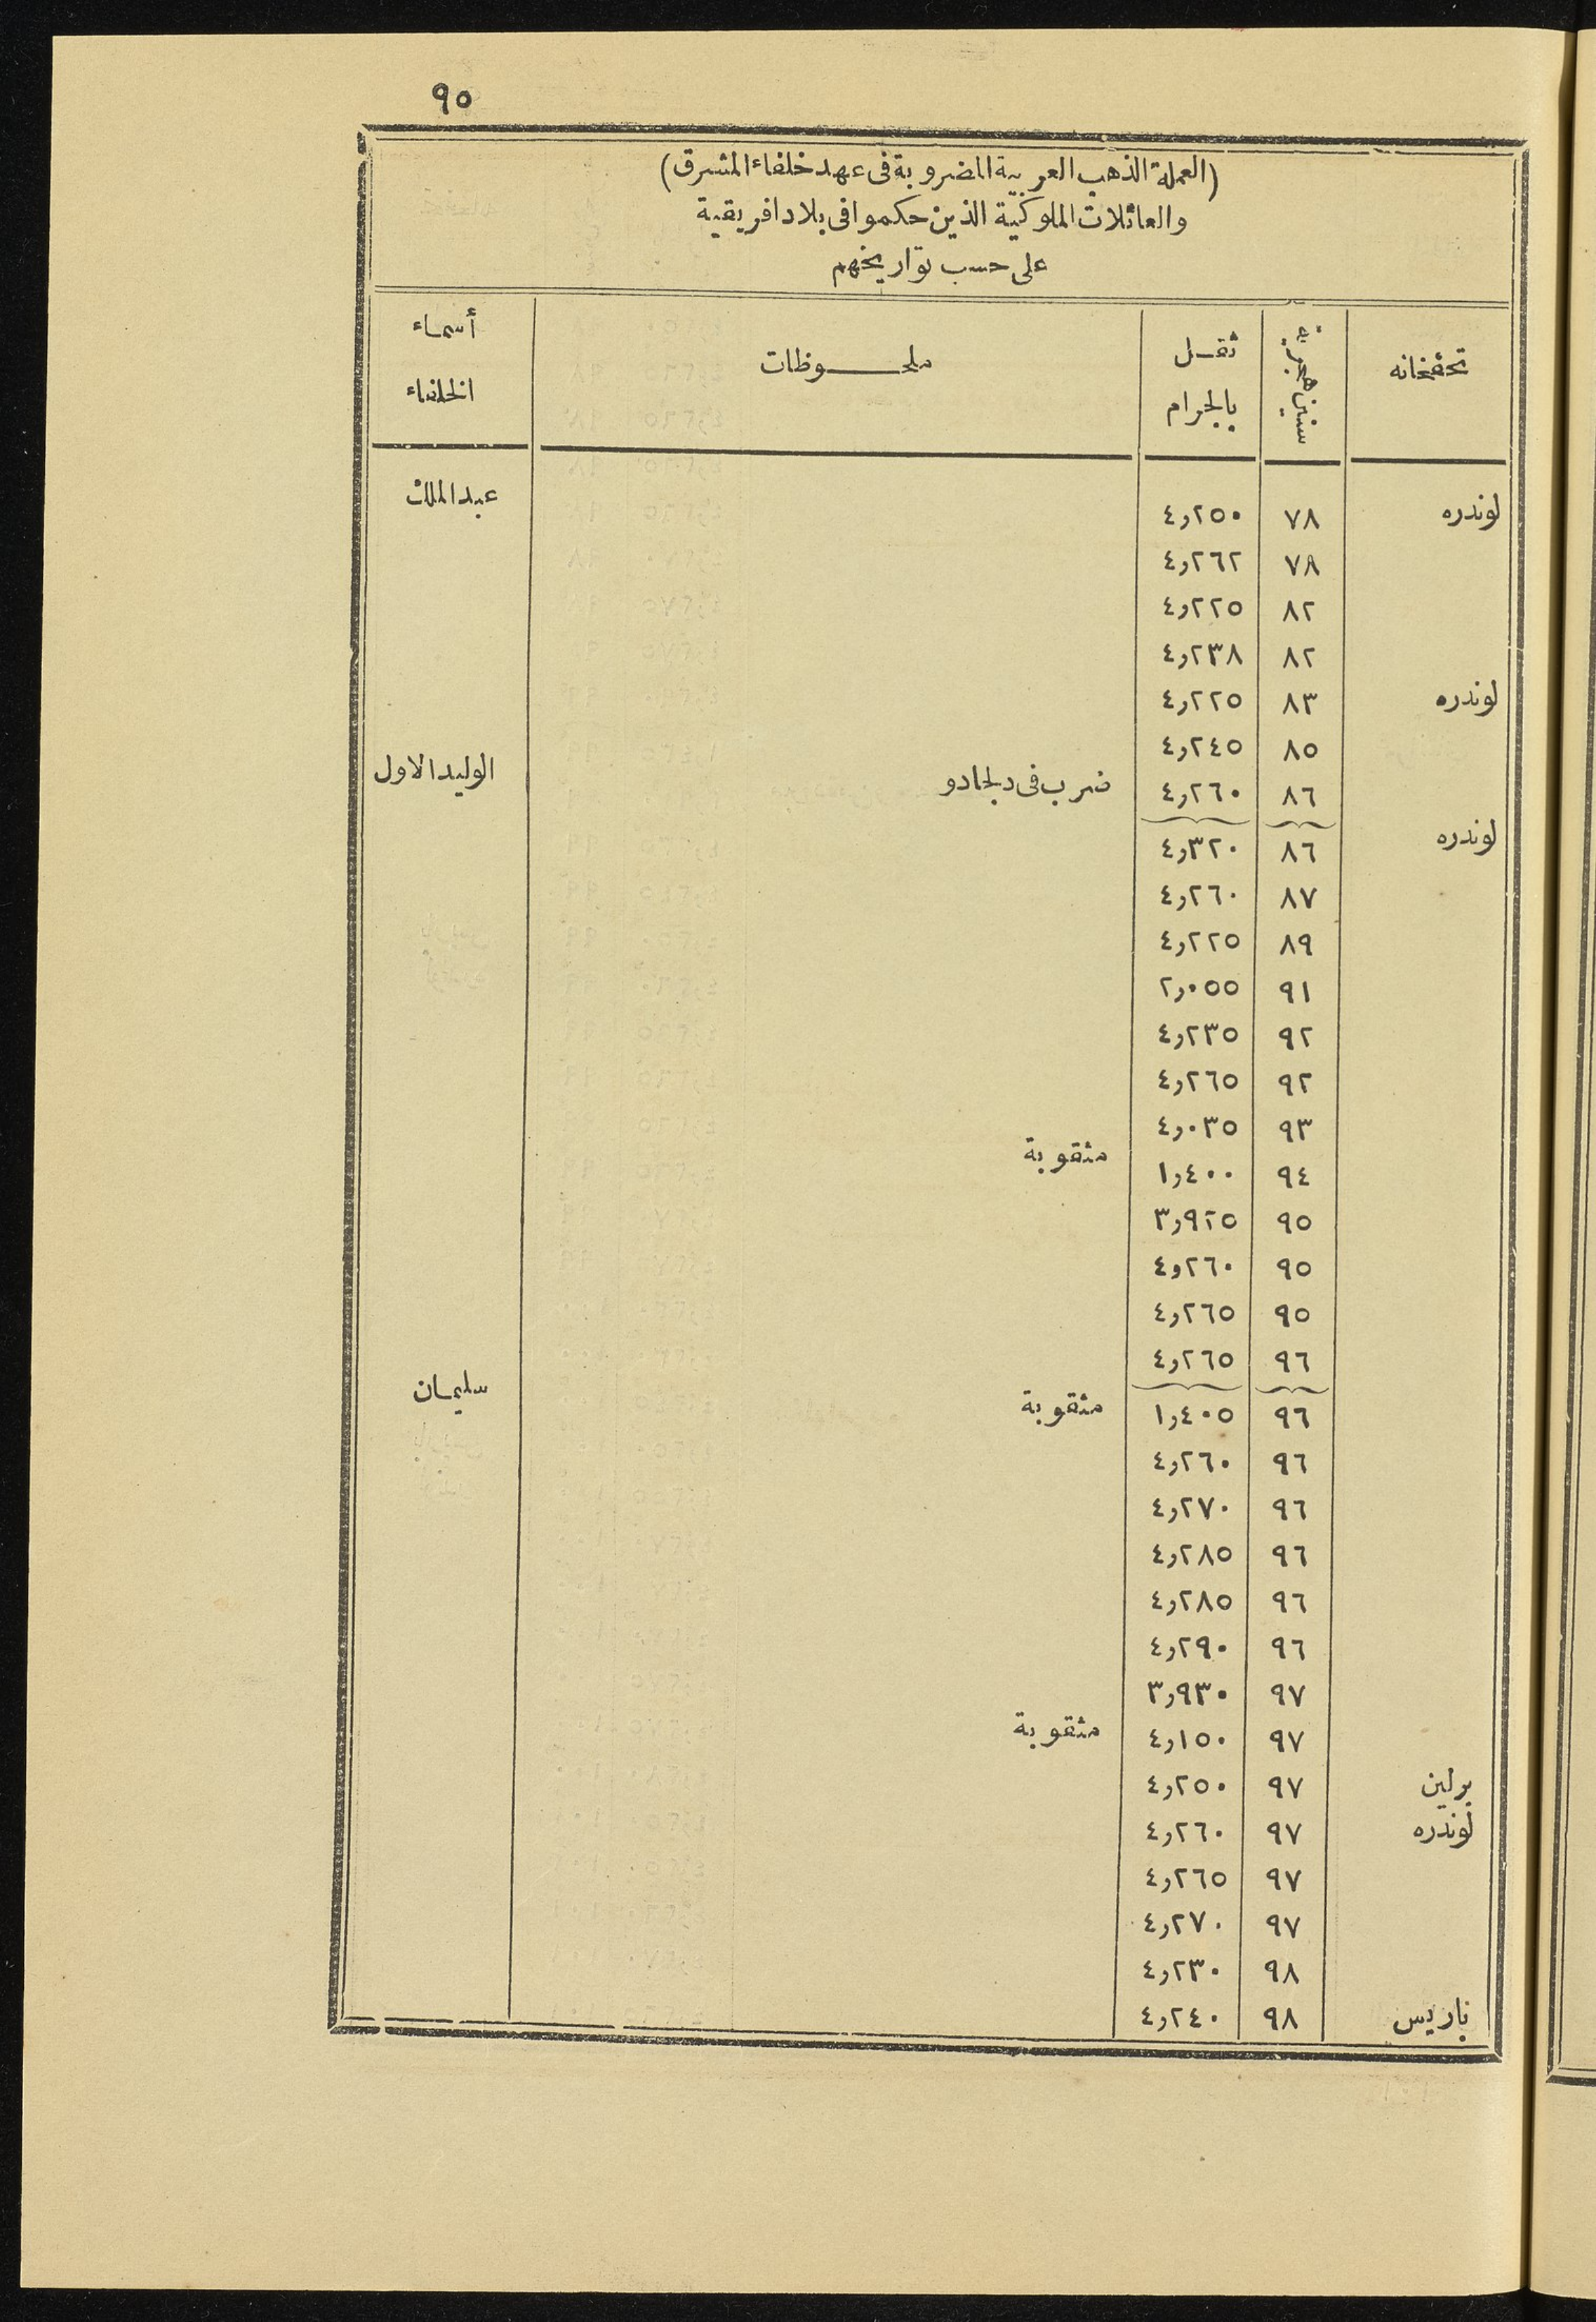 ٩٥
(العملة الذهب العربية المضروبة فى عهد خلفاء المشرق)
والعائلات الملوكية الذين حكموا فى بلاد افريقية
على حسب تواريخهم
تحفخانه | سنين هجرية | ثقل بالجرام | ملحوظات | أسماء الخلفاء
لوندره | ٧٨ | ٤,٢٥٠ | | عبد الملك
٧٨ | ٤,٢٦٢
٨٢ | ٤,٢٢٥
٨٢ | ٤,٢٣٨
لوندره | ٨٣ | ٤,٢٢٥
٨٥ | ٤,٢٤٥
٨٦ | ٤,٢٦٠ | ضرب فى دلجادو | الوليد الاول
لوندره | ٨٦ | ٤,٣٢٠
٨٧ | ٤,٢٦٠
٨٩ | ٤,٢٢٥
٩١ | ٢,٠٥٥
٩٢ | ٤,٢٣٥
٩٢ | ٤,٢٦٥
٩٣ | ٤,٠٣٥ | مثقوبة
٩٤ | ١,٤٠٠
٩٥ | ٣,٩٢٥
٩٥ | ٤,٢٦٠
٩٥ | ٤,٢٦٥
٩٦ | ٤,٢٦٥
٩٦ | ١,٤٠٥ | مثقوبة | سليمان
٩٦ | ٤,٢٦٠
٩٦ | ٤,٢٧٠
٩٦ | ٤,٢٨٥
٩٦ | ٤,٢٨٥
٩٦ | ٤,٢٩٠
٩٧ | ٣,٩٣٠
٩٧ | ٤,١٥٠ | مثقوبة
برلين | ٩٧ | ٤,٢٥٠
لوندره | ٩٧ | ٤,٢٦٠
٩٧ | ٤,٢٦٥
٩٧ | ٤,٢٧٠
٩٨ | ٤,٢٣٠
باريس | ٩٨ | ٤,٢٤٠